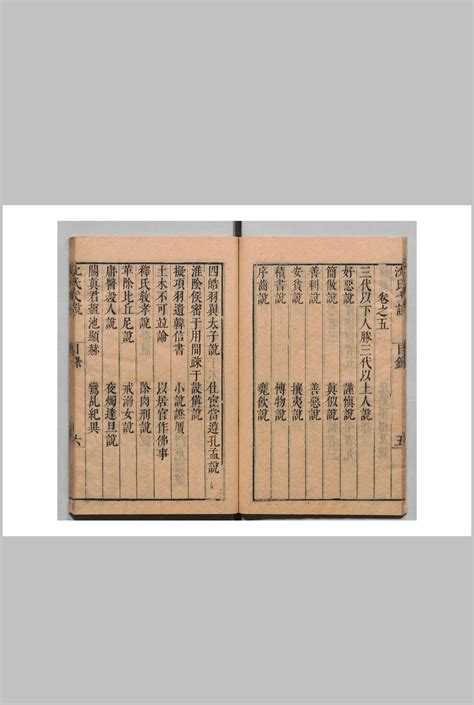 沈氏弋說 目錄 五
卷之五
三代以下人勝三代以上人說
好惡說 謹慎說
簡傲說 真似說
善利說 善惡說
安貧說 攘夷說
積書說 博物說
序齒說
四皓羽翼太子說 仕宦當遵孔孟說
淮陰侯密于用間疎于設備說
擬項羽遺韓信書 小說
土木不可竝論 以居官作佛事
釋氏教孝說 除肉刑說
革除比丘尼說 戒溺女說
庸醫殺人說 夜燭達旦說
關真君 池顯赫 鸞乩紀異
沈氏弋說 目錄 六